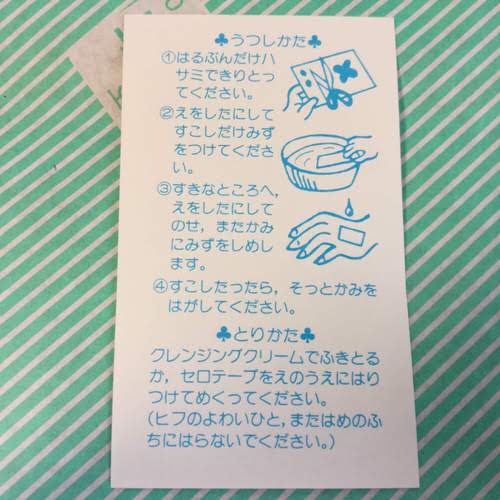 ♣うつしかた♣
①はるぶんだけハ
サミできりとっ
てください。
②えをしたにして
すこしだけみず
をつけてくださ
い。
③すきなところへ,
えをしたにして
のせ,またかみ
にみずをしめし
ます。
④すこしたったら,そっとかみを
はがしてください。
♣とりかた♣
クレンジングクリームでふきとる
か,セロテープをえのうえにはり
つけてめくってください。
(ヒフのよわいひと,またはめのふ
ちにはらないでください。)